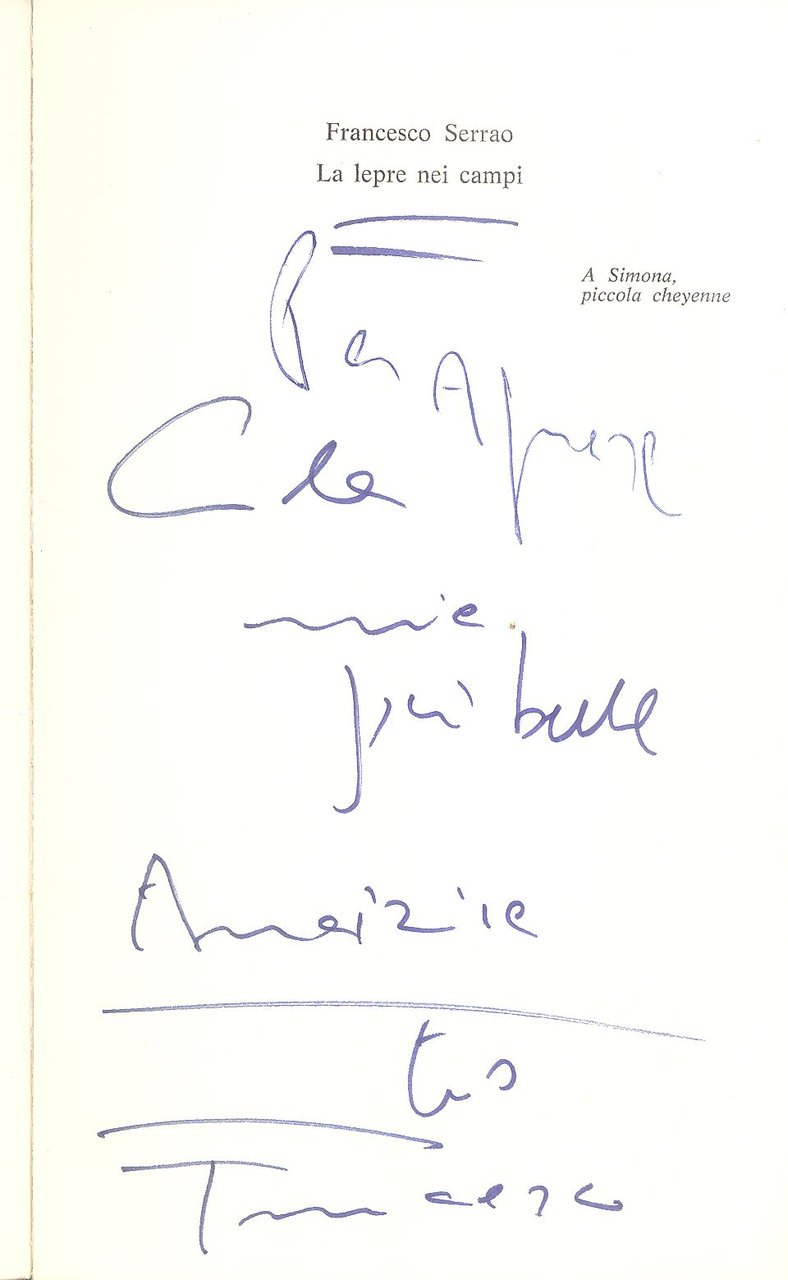 Francesco Serrao
La lepre nei campi
A Simona,
piccola cheyenne
Per
la
mia
più bella
Amicizia
tuo
Francesco